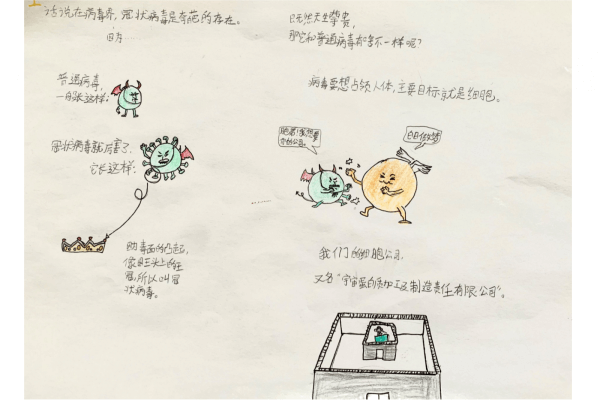 话说在病毒界,冠状病毒是奇葩的存在。
普通病毒,
一般长这样:
冠状病毒就厉害了,
它长这样:
病毒面的凸起,
像国王头上的王
冠,所以叫冠
状病毒。
既然天生挚贵,
那它和普通病毒有啥不一样呢?
病毒要想占领人体,主要目标就是细胞。
我们的细胞公司,
又名"宇宙蛋白质加工及制造责任有限公司"。